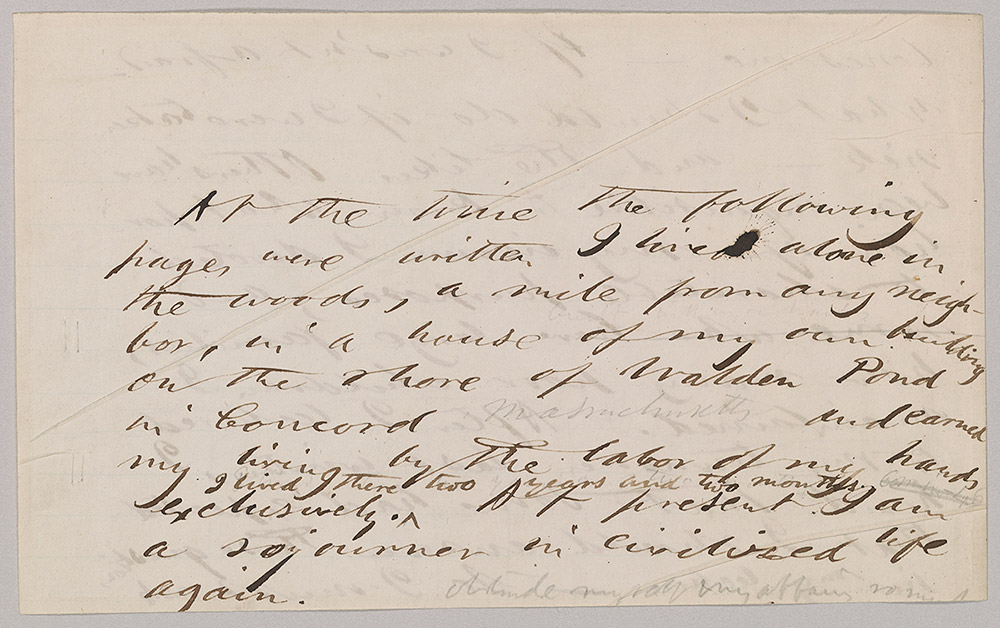 At the time the following
pages were written I lived alone in
the woods, a mile from any neigh-
bor, in a house of my own building
on the shore of Walden Pond
in Concord Massachusetts and earned
my living by the labor of my hands
I lived there two years and two months
exclusively. ^ At present I am
a sojourner in civilized life
again.
obtrude my self & my affairs so much